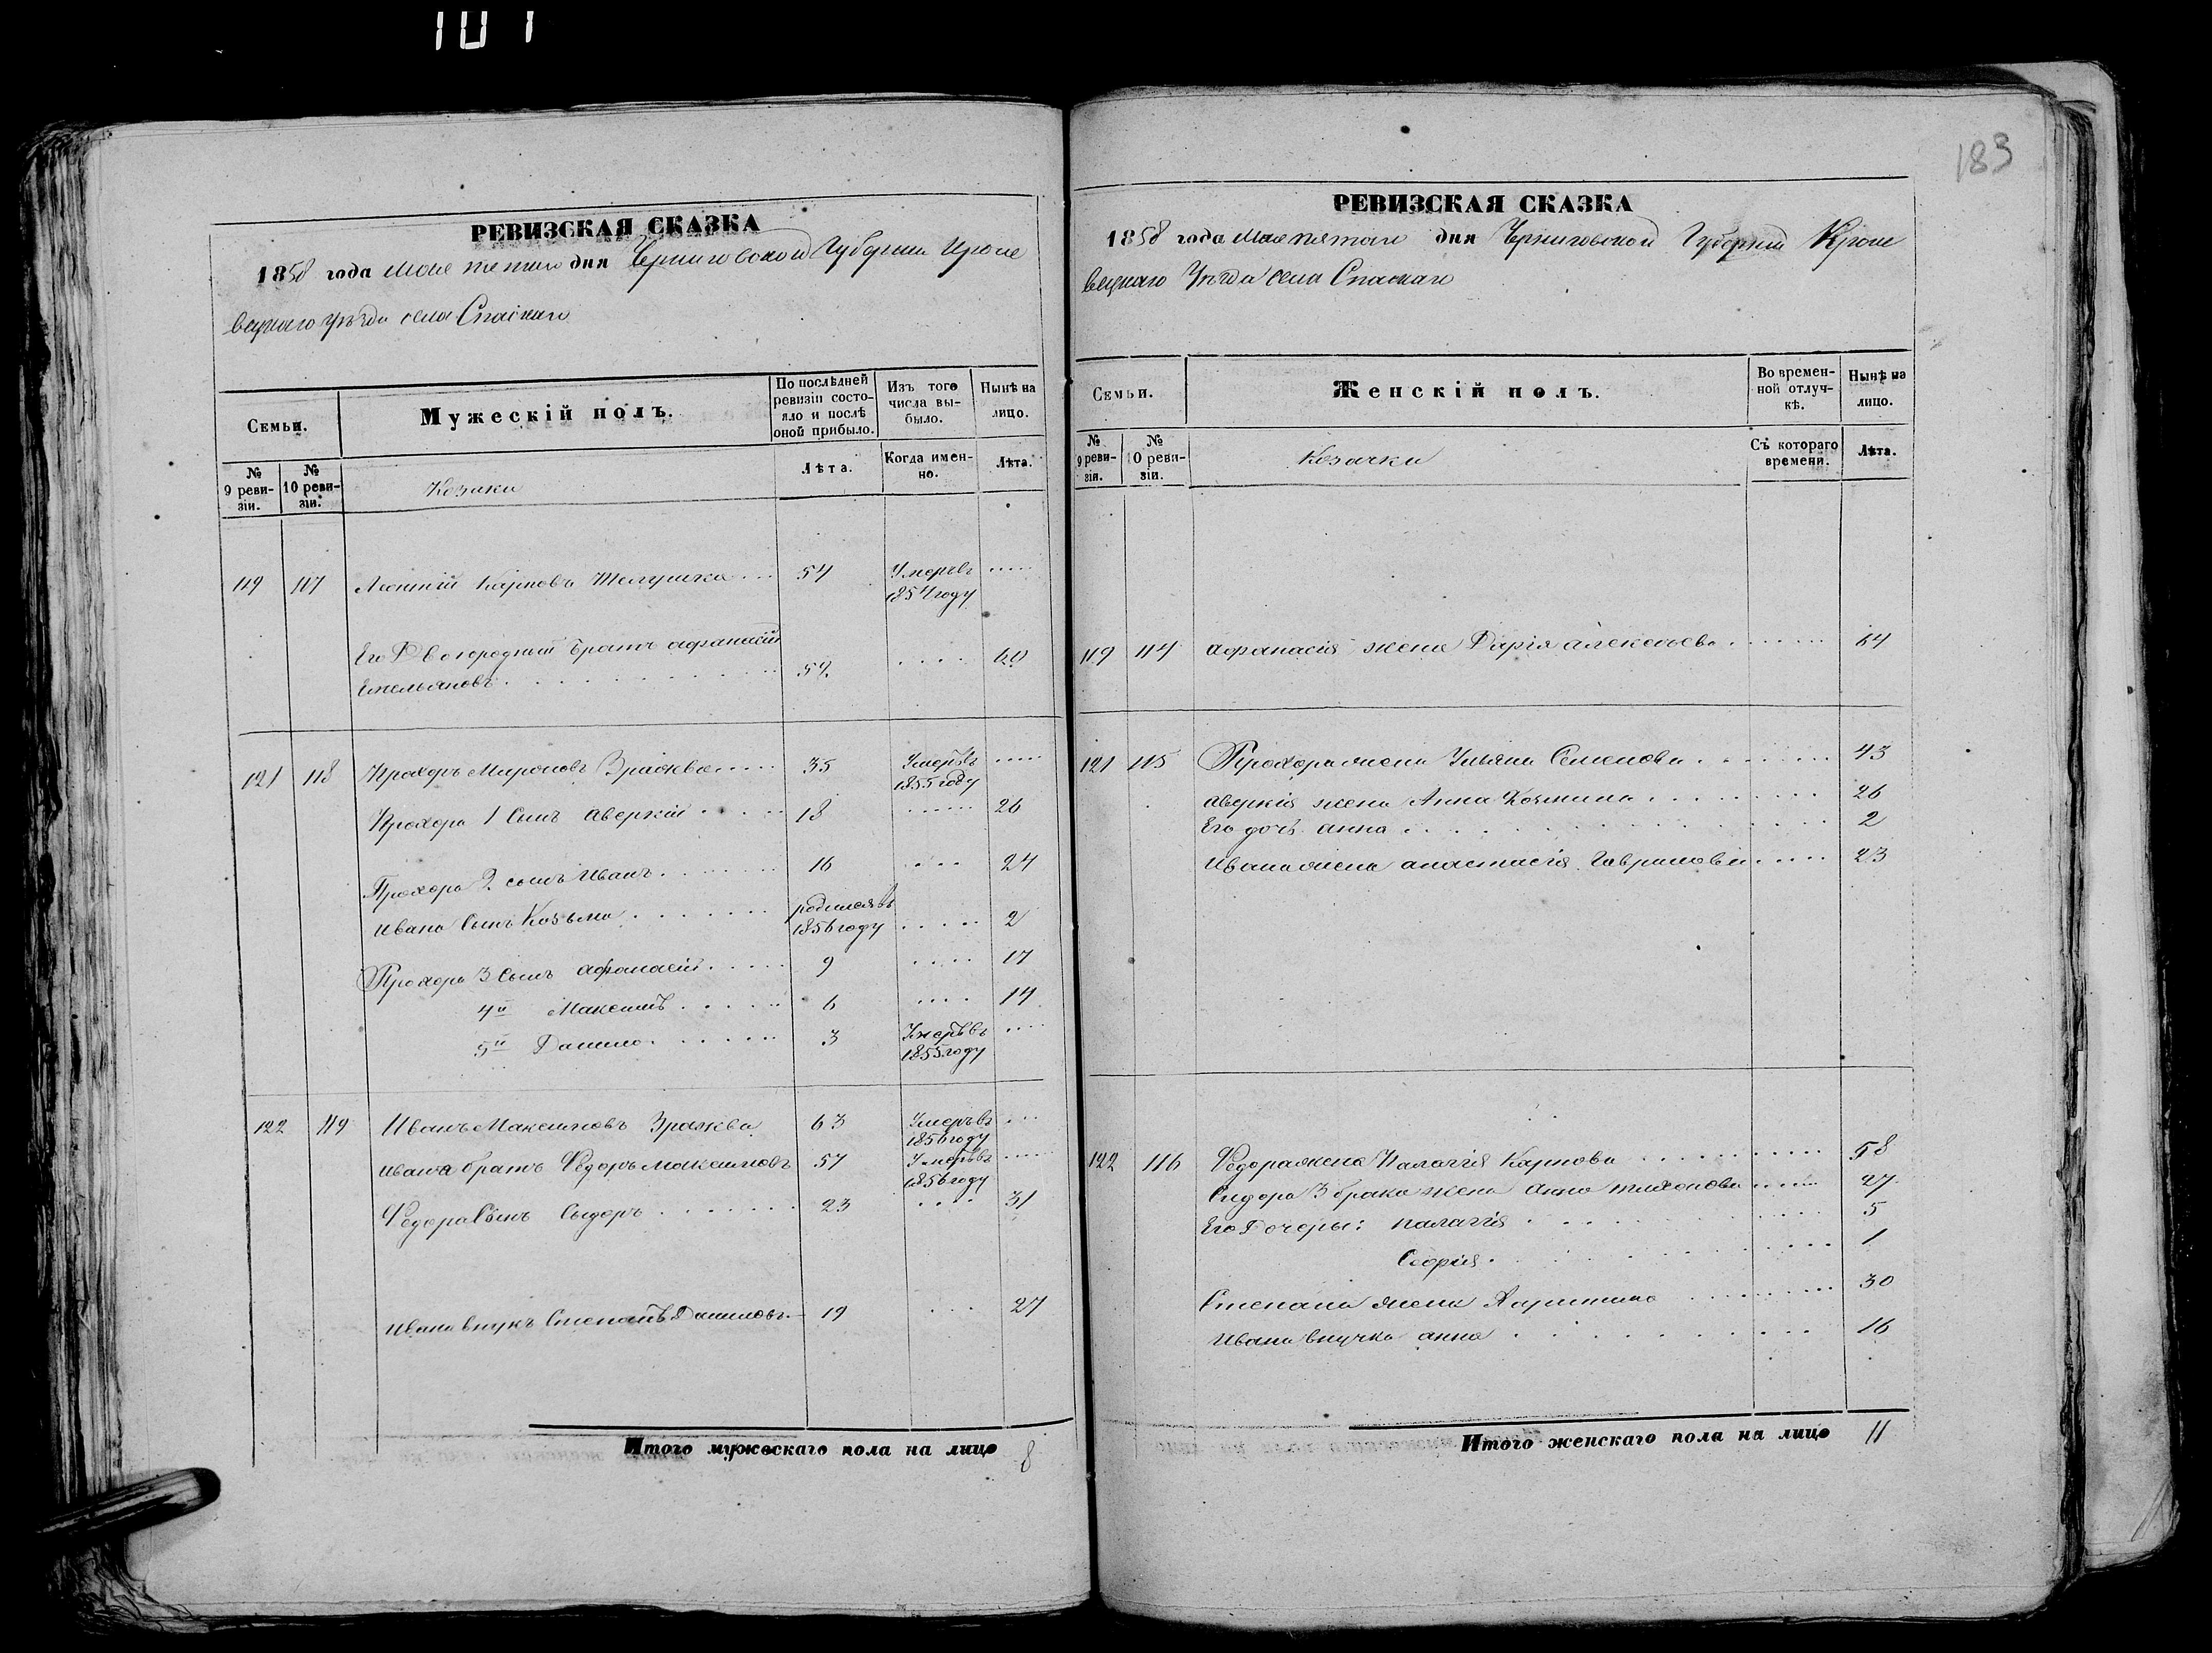 101
183
РЕВИЗСКАЯ СКАЗКА
1858 года Мая пятаго дня Черниговской Губерніи Кроле
вецкаго уѣзда села Спаскаго
Семьи.
Мужескій полъ.
По послѣдней ревизіи состояло и послѣ оной прибыло.
Изъ того числа выбыло.
Нынѣ на лицо.
№ 9 ревизіи.
№ 10 ревизіи.
Козаки
Лѣта.
Когда именно.
Лѣта.
119 117 Карповъ 54 Умеръ въ 1854 году
Его Двоюродный братъ Афанасій
Емельяновъ 59 60
121 118 Прохоръ Мироновъ Зражва 35 Умеръ въ 1855 году
Прохора 1 Сынъ Аверкій 18 26
Прохора 2 сынъ Иванъ 16 24
Ивана Сынъ Козьма родился въ 1856 году 2
Прохора 3 Сынъ Афанасій 9 17
4й Максимъ 6 14
5й Данило 3 Умеръ въ 1855 году
122 119 Иванъ Максимовъ Зражва 63 Умеръ въ 1856 году
Ивана братъ Федоръ Максимовъ 57 Умеръ въ 1856 году
Федора Сынъ Сидоръ 23 31
Ивана внукъ Степанъ Даниловъ 19 27
Итого мужескаго пола на лицо 8
РЕВИЗСКАЯ СКАЗКА
1858 года Мая пятаго дня Черниговской Губерніи Кроле
вецкаго Уѣзда села Спаскаго
Семьи.
Женскій полъ.
Во временной отлучкѣ.
Нынѣ на лицо.
№ 9 ревизіи.
№ 10 ревизіи.
Козачки
Съ котораго времени.
Лѣта.
119 114 Афанасія жена Дарія Алексѣева 64
121 115 Прохора жена Ульяна Семенова 43
Аверкія жена Анна Козмина 26
Его дочь Анна 2
Ивана жена Анастасія Гаврилова 23
122 116 Федора жена Палагія Карпова 58
Сидора 3 брака жена Анна Тихонова 27
Его Дочеры: Палагія 5
Софія 1
Степана жена Харитина 30
Ивана внучка Анна 16
Итого женскаго пола на лицо 11